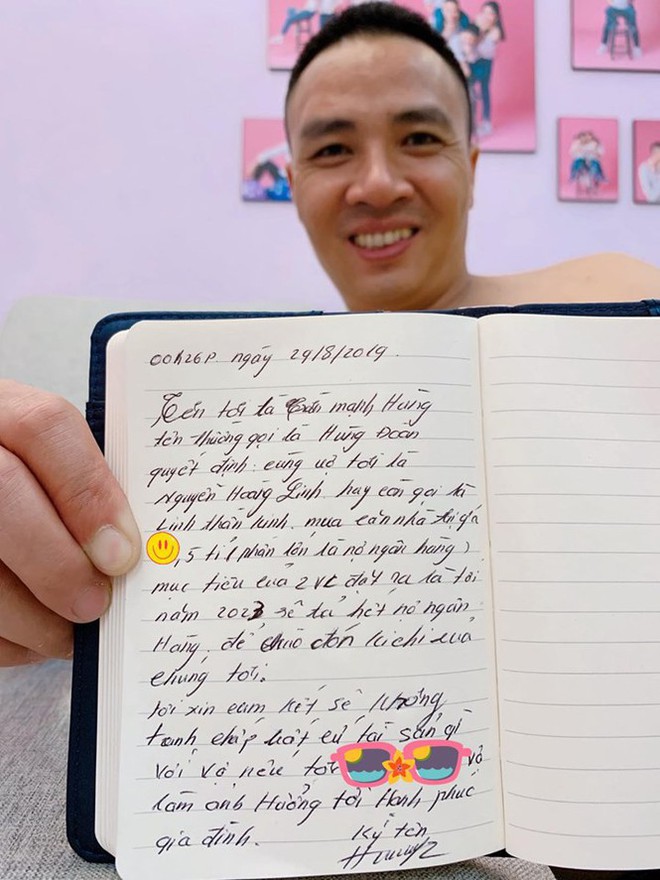 00h26p ngày 29/8/2019.
Tên tôi là Trần mạnh Hùng
tên thường gọi là Hùng Đoàn
quyết định cùng vợ tôi là
Nguyễn Hoàng Linh hay còn gọi là
Linh thần kinh, mua căn nhà trị giá
,5 tỉ (phần lớn là nợ ngân hàng)
mục tiêu của 2 vc đặt ra là tới
năm 2023 sẽ trả hết nợ ngân
Hàng để chào đón của
chúng tôi.
tôi xin cam kết sẽ không
tranh chấp bất cứ tài sản gì
với vợ nếu tôi
làm ảnh Hưởng tới Hạnh phúc
gia đình. Ký tên